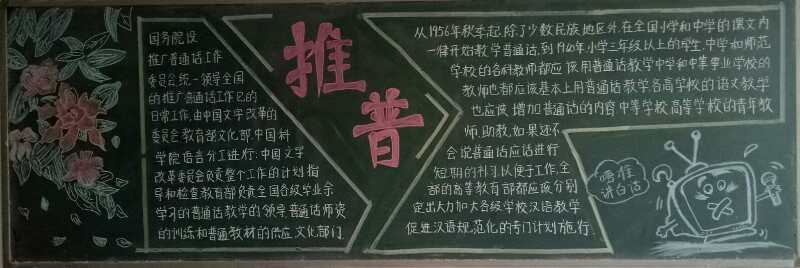 国务院设
推广普通话工作
委员会统一领导全国
的推广普通话工作它的
日常工作,由中国文字改革的
委员会教育部文化部中国科
学院语言分工进行:中国文字
改革委员会负责整个工作的计划指
导和检查教育部负责全国各级学业余
学习的普通话教学的领导普通话师资
的训练和普通教材的供应文化部门
推
普
从1956年秋季起,除了少数民族地区外,在全国小学和中学的课文内
一律开始教学普通话,到1960年小学三年级以上的学生,中学和师范
学校的各科教师都应该用普通话教学中学和中等专业学校的
教师也都应该基本上用普通话教学各高学校的语文教学
也应该增加普通话的内容中等学校高等学校的青年教
师,助教,如果还不
会说普通话应话进行
短期的补习以便于工作,全
部的高等教育部都应该分别
定出大力加大各级学校汉语教学
促进汉语规范化的专门计划施行
讲白话